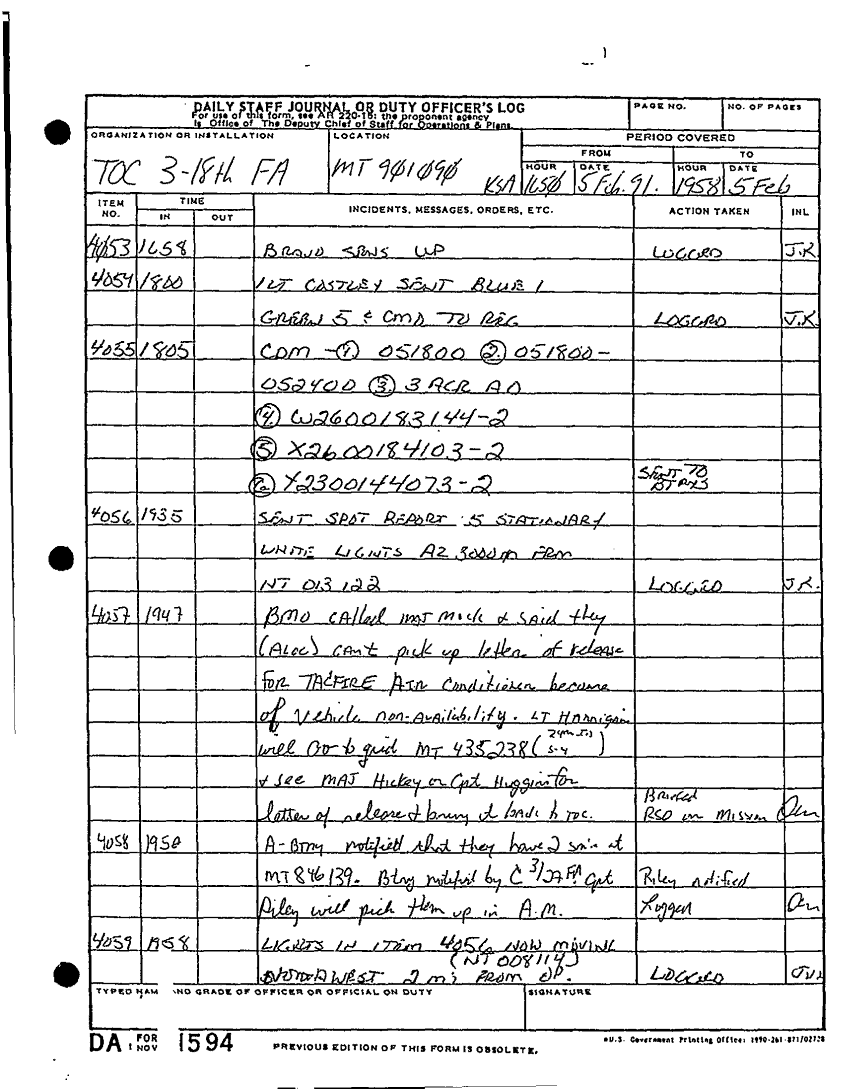 DAILY STAFF JOURNAL OR DUTY OFFICER'S LOG
For use of this form, see AR 220-15; the proponent agency
is Office of The Deputy Chief of Staff for Operations & Plans.
PAGE NO.
NO. OF PAGES
ORGANIZATION OR INSTALLATION
TOC 3-18th FA
LOCATION
MT 901090 KSA
PERIOD COVERED
FROM
TO
HOUR
1650
DATE
5 Feb. 91.
HOUR
1958
DATE
5 Feb
ITEM NO.
TIME
IN
OUT
INCIDENTS, MESSAGES, ORDERS, ETC.
ACTION TAKEN
INL
4053 1658 BRAVO SENS UP LOGGED J.K
4054 1800 1LT COSTLEY SENT BLUE 1
GREEN 5 & CMD TO REG LOGGED J.K
4055 1805 CDM - ① 051800 ② 051800-
052400 ③ 3 ACR AO
④ W2600183144-2
⑤ X2600184103-2
Y2300144073-2 SENT TO BTRYS
4056 1935 SENT SPOT REPORT 5 STATIONARY
WHITE LIGHTS AZ 3000m FRM
NT 013122 LOGGED J.K.
4057 1947 BMO called MAJ Mock & said they
(ALOC) can't pick up letter of release
for TACFIRE Air Conditioner because
of vehicle non-availability. LT Hannigan
will go to grid MT 435238 (
S-4 )
& see MAJ Hickey or Cpt Huggins for
letter of release & bring it back to TOC. Briefed RSO on Mission
4058 1950 A-Btry notified that they have 2 at
MT 846139. Btry notified by C 3/ FA Cpt Riley notified
Riley will pick them up in A.M. Logged
4059 1958 LIGHTS IN ITEM 4056 NOW MOVING
(NT 008114)
WEST 2 mi FROM OP. LOGGED
TYPED NAM AND GRADE OF OFFICER OR OFFICIAL ON DUTY
SIGNATURE
DA FOR 1 NOV 1594
PREVIOUS EDITION OF THIS FORM IS OBSOLETE.
U.S. Government Printing Office: 1990-261-871/02728